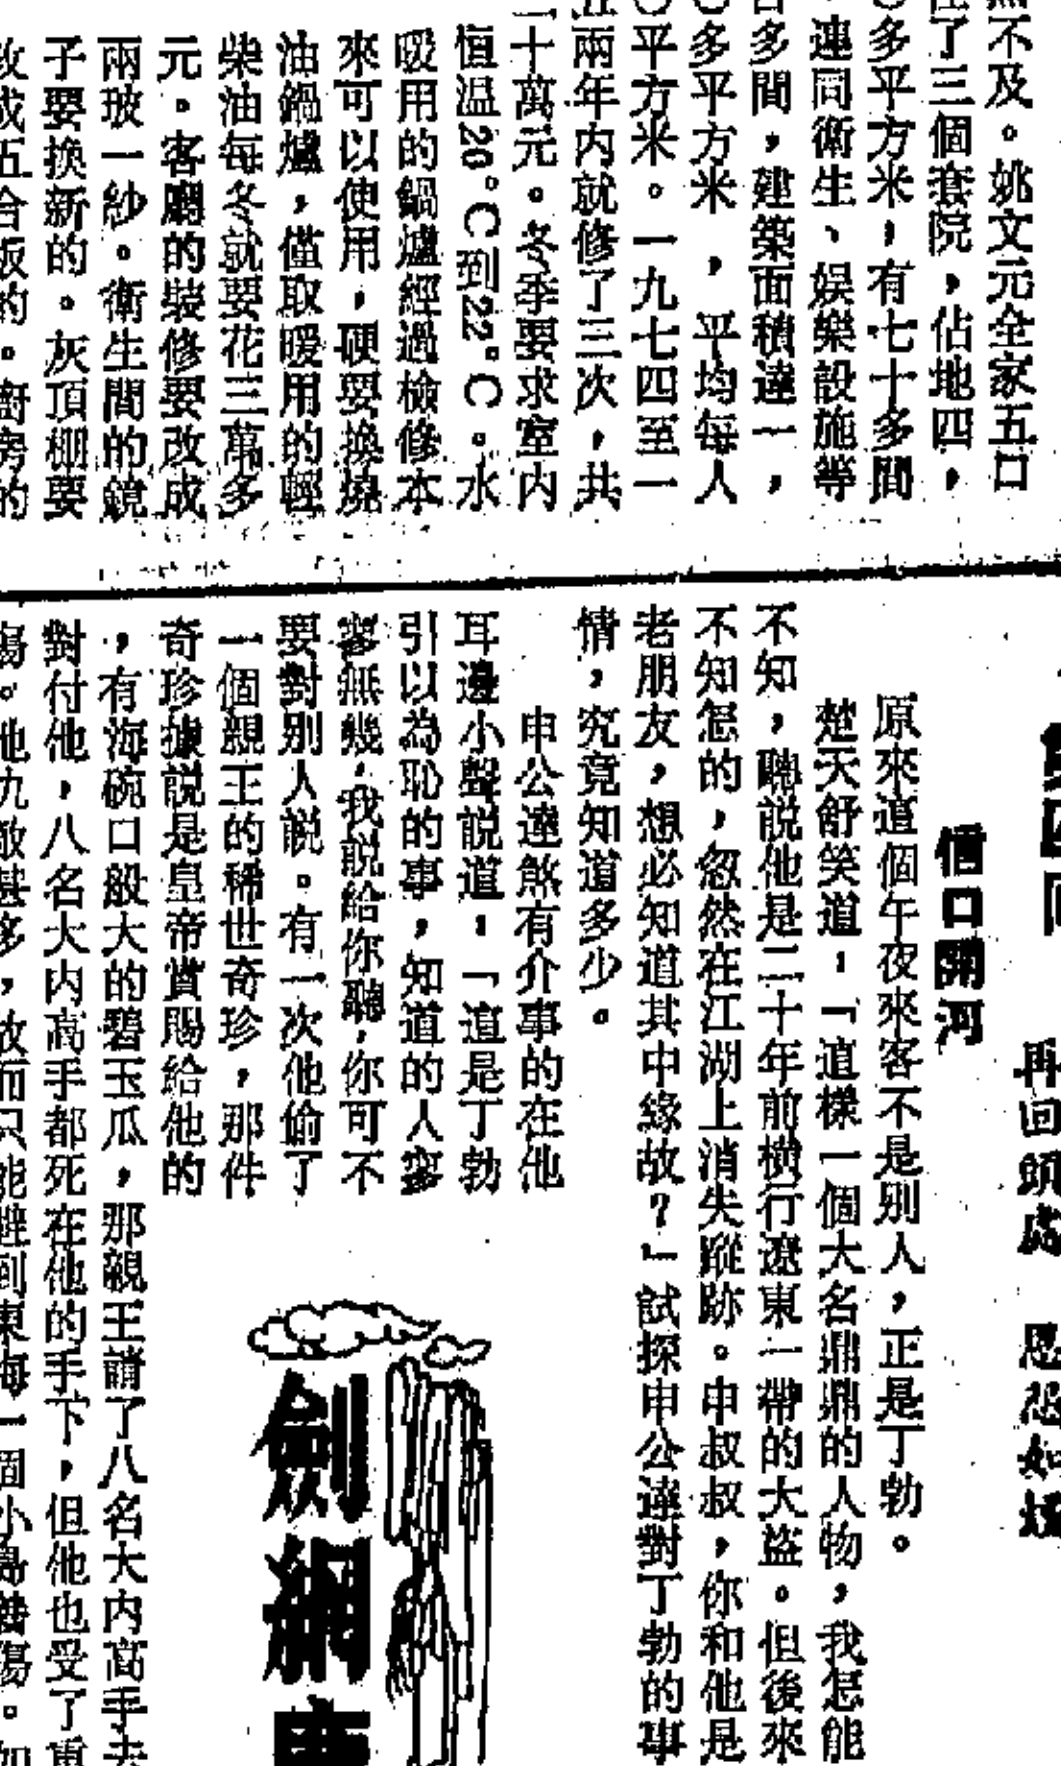 不及。姚文元全家五口
了三個套院，佔地四，
多平方米，有七十多間
連同衛生、娛樂設施等
多間，建築面積達一，
多平方米，平均每人
〇平方米。一九七四至一
兩年内就修了三次，共
十萬元。冬季要求室内
恒温20°C到22°C。水
暖用的鍋爐經過檢修本
來可以使用，硬要換燒
油鍋爐，僅取暖用的輕
柴油每冬就要花三萬多
元。客廳的裝修要改成
兩玻一紗。衛生間的鏡
子要換新的。灰頂棚要
改成五合板的。廚房的
再回頭處 恩怨如煙
信口開河
原來這個午夜來客不是别人，正是丁勃。
楚天舒笑道：「這樣一個大名鼎鼎的人物，我怎能
不知，聽説他是二十年前橫行遼東一帶的大盜。但後來
不知怎的，忽然在江湖上消失蹤跡。申叔叔，你和他是
老朋友，想必知道其中緣故？」試探申公達對丁勃的事
情，究竟知道多少。
申公達煞有介事的在他
耳邊小聲説道：「這是丁勃
引以為恥的事，知道的人寥
寥無幾，我説給你聽，你可不
要對别人説。有一次他偷了
一個親王的稀世奇珍，那件
奇珍據説是皇帝賞賜給他的
，有海碗口般大的碧玉瓜，那親王請了八名大内高手去
對付他，八名大内高手都死在他的手下，但他也受了重
傷。他仇敵甚多，故而只能避到東海一個小島養傷。如
劍網